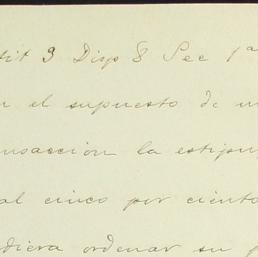 tit 9 Disp 8 Sec 1ª
el supuesto de
nsaccion la estipu
al cinco por ciento
diera ordenar su